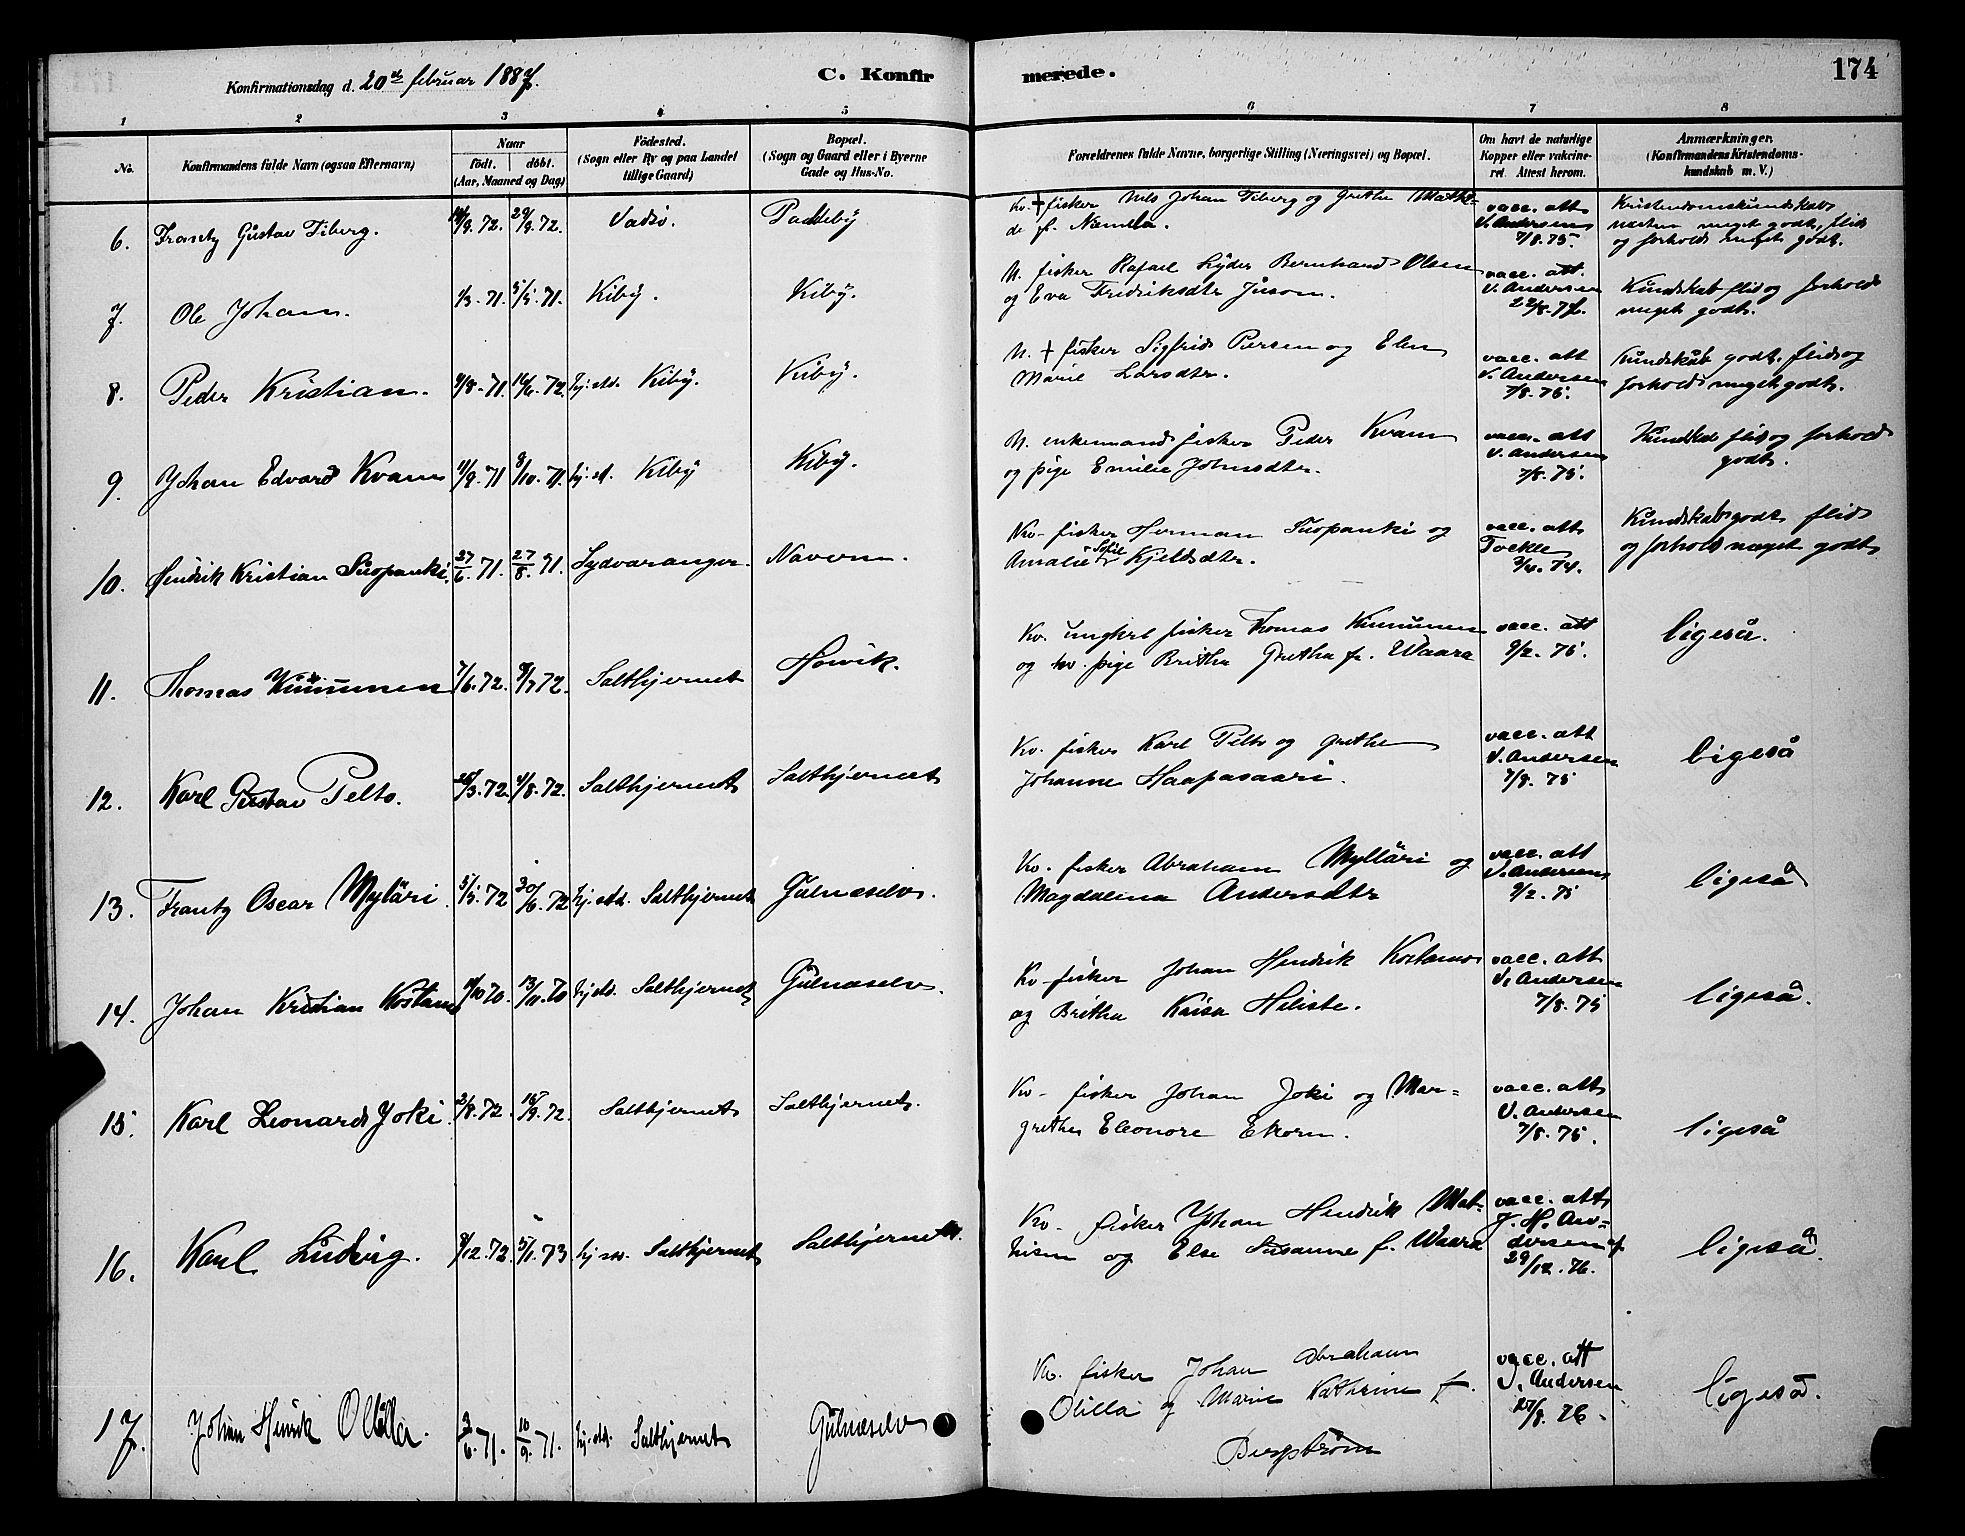 Konfirmationsdag d. 20de februar 1887.
C. Konfir
merede.
174
1 2 3 4 5 6 7 8
No.
Konfirmandens fulde Navn (ogsaa Efternavn)
Naar
födt. döbt.
(Aar, Maaned og Dag)
Födested.
(Sogn eller By og paa Landet
tillige Gaard)
Bopæl.
(Sogn og Gaard eller i Byerne
Gade og Hus-No.
Forældrenes fulde Navne, borgerlige Stilling (Næringsvei) og Bopæl.
Om havt de naturlige
Kopper eller vakcine-
ret. Attest herom.
Anmærkninger,
(Konfirmandens Kristendoms-
kundskab m. V.)
6. Frantz Gustav Fiberg. 29/9. 72. Vadsö. Paddeby
Kv. + fisker Nils Johan Fiberg og Grethe Mathil-
de f. Nämlla.
vacc. att
V. Andersen
7/8. 75.
Kristendomskundskab
næsten meget godt, flid
og forhold meget godt.
7. Ole Johan. 1/3. 71. 5/5. 71. Kiby. Kiby.
N. fisker Rafael Lyder Bernhard Olsen
og Eva Fredriksdtr Juson.
vacc. att.
V. Andersen
22/8. 77.
Kundskab flid og forhold
meget godt.
8. Peder Kristian. 9/8. 71. 16/6. 72. hj. dd. Kiby. Kiby.
N. + fisker Sigfrid Persen og Elen
Marie Larsdtr.
vacc. att
V. Andersen
7/8. 75.
Kundskab godt, flid og
forhold meget godt.
9. Johan Edvard Kvam 11/9. 71 8/10. 71. hj. d. Kiby Kiby.
N. enkemand fisker Peder Kvam
og pige Emilie Johnsdtr.
vacc. att
V. Andersen
7/8. 75.
Kundskab flid og forhold
godt.
10. Hendrik Kristian Suopanki. 27/6. 71. 27/8. 71. Sydvaranger. Navern.
Kv. fisker Herman Suopanki og
Amalie Sofie Kjeldsdtr.
vacc. att
2/4. 74.
Kundskab godt flid
og forhold meget godt
11. Thomas Kinnunen 7/6. 72. 9/7 72. Salthjernet Howik.
Kv. ungkrl fisker Thomas Kinnunen
og kv. pige Britha Gretha f. Waara
vacc. att
9/2. 75.
ligeså.
12. Karl Gustav Pelto. 4/8. 72. Salthjernet Salthjernet
Kv. fisker Karl Pelto og Grethe
Johanne Haapasaari.
vacc. att
V. Andersen
7/8. 75
ligeså
13. Frantz Oscar Myläri 5/5. 72 30/6. 72 hj. dd. Salthjernet Gulnæselv.
Kv. fisker Abraham Mylläri og
Magdalena Andersdtr
vacc. att
V. Andersen
9/2. 75
ligeså
14. Johan Kristian Kostamo 70. 13/11. 70 hj. dd. Salthjernet Gulnæselv.
Kv fisker Johan Hendrik Kostamo
og Britha Kaisa Hiliste.
vacc. att
V. Andersen
7/8. 75
ligeså.
15. Karl Leonard Joki. 2/8. 72. 15/9. 72. Salthjernet Salthjernet.
Kv. fisker Johan Joki og Mar-
grethe Eleonore Ekorn.
vacc. att
V. Andersen
7/8. 75.
ligeså
16. Karl Ludvig. 9/12. 72. 5/1. 73 hj. dd. Salthjernet Salthjernet.
Kv. fisker Johan Hendrik Mat-
tisen og Else Susanne f. Waara
vacc. att
J. H. An-
dersen
29/12. 76.
ligeså.
17. Johan Henrik Olilla. 3/6. 71. 10/9. 71. hj. dd. Salthjernet Gulnæselv
Kv. fisker Johan Abraham
Olilla og Marie Kathrine f.
Bergström
vacc. att
J. Andersen
15/8. 76.
ligeså.